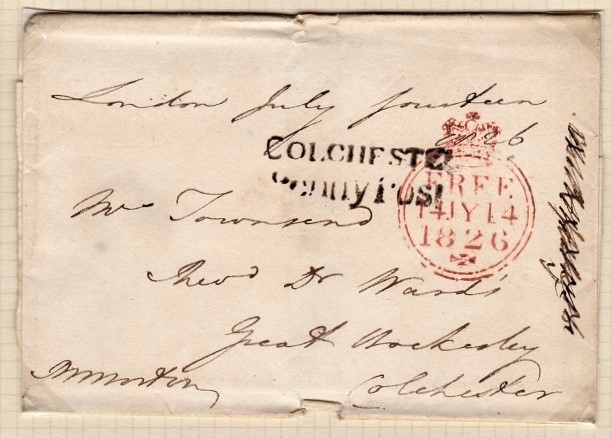 London July fourteen
1826
COLCHESTE
Penny Post
FREE
14 JY 14
1826
Mrs Townsend
Revd Dr Ward's
Great Horkesley
Colchester